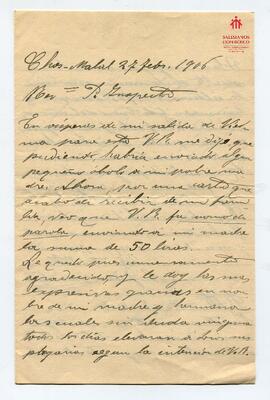 SALESIANOS
DON BOSCO
Chos-Malal 27 febr. 1906
Rev.mo P. Inspector
En vísperas de mi salida de Vied-
ma para esta V.R. me dijo que
pudiendo, habría enviado algun
pequeño óbolo a mi pobre ma
dre. Ahora, por una carta que
acabo de recibir de mi fami
lia, veo que V.R. fu uomo di
parola enviando a mi madre
la suma de 50 liras.
Le quedo pues sumamente
agradecido, y le doy las mas
expresivas gracias en nom
bre de mi madre y hermana
las cuales sin duda ninguna
todos los días elevaran a Dios sus
plegarias segun la intencion de V.R.